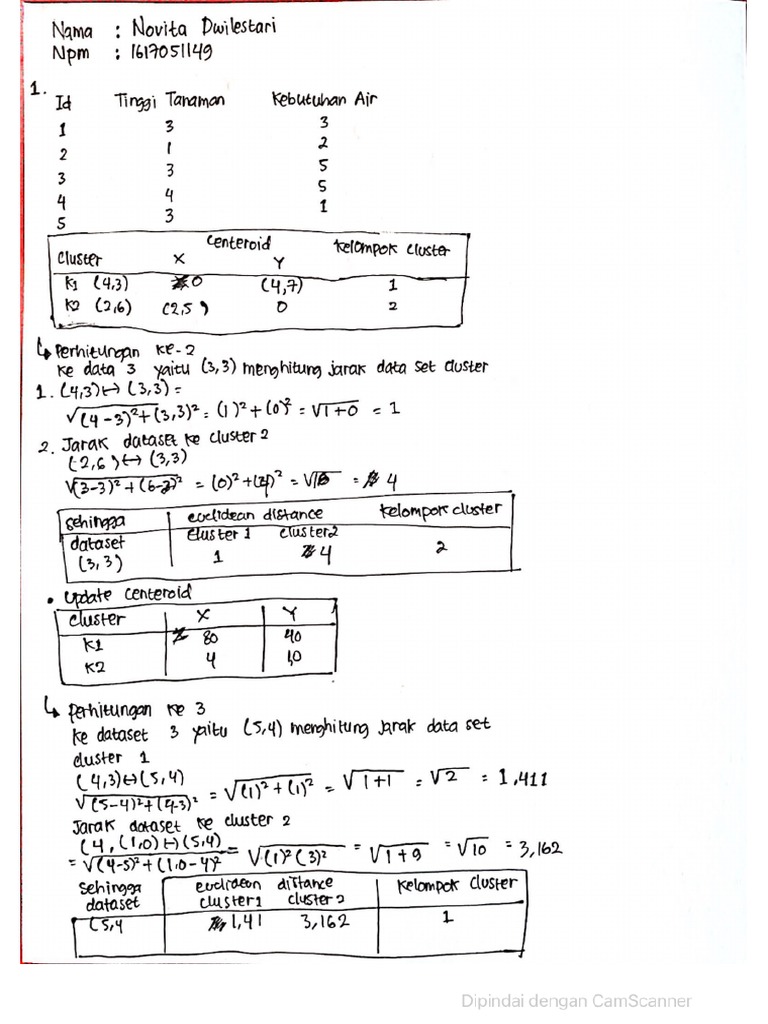 Nama : Novita Dwilestari
Npm : 1617051149
1. Id Tinggi Tanaman Kebutuhan Air
1 3 3
2 1 2
3 3 5
4 4 5
5 3 1
Centeroid
Cluster X Y Kelompok cluster
K1 (4,3) 0 (4,7) 1
K2 (2,6) (2,5) 0 2
↳ Perhitungan ke-2
ke data 3 yaitu (3,3) menghitung jarak data set cluster
1. (4,3) ↔ (3,3) =
√(4-3)²+(3,3)² = (1)²+(0)² = √1+0 = 1
2. Jarak dataset ke cluster 2
(2,6) ↔ (3,3)
√(3-3)²+(6-2)² = (0)²+(4)² = √16 = 4
Sehingga euclidean distance Kelompok cluster
dataset cluster 1 cluster 2
(3,3) 1 4 2
• Update Centeroid
Cluster X Y
K1 80 40
K2 4 1,0
↳ Perhitungan ke 3
ke dataset 3 yaitu (5,4) menghitung jarak data set
cluster 1
(4,3) ↔ (5,4)
√(5-4)²+(4-3)² = √(1)²+(1)² = √1+1 = √2 = 1,411
Jarak dataset ke cluster 2
(4,(1,0) ↔ (5,4)
= √(4-5)²+(1,0-4)² = √(1)²(3)² = √1+9 = √10 = 3,162
Sehingga euclidean distance Kelompok cluster
dataset cluster 1 cluster 2
(5,4 1,41 3,162 1
Dipindai dengan CamScanner